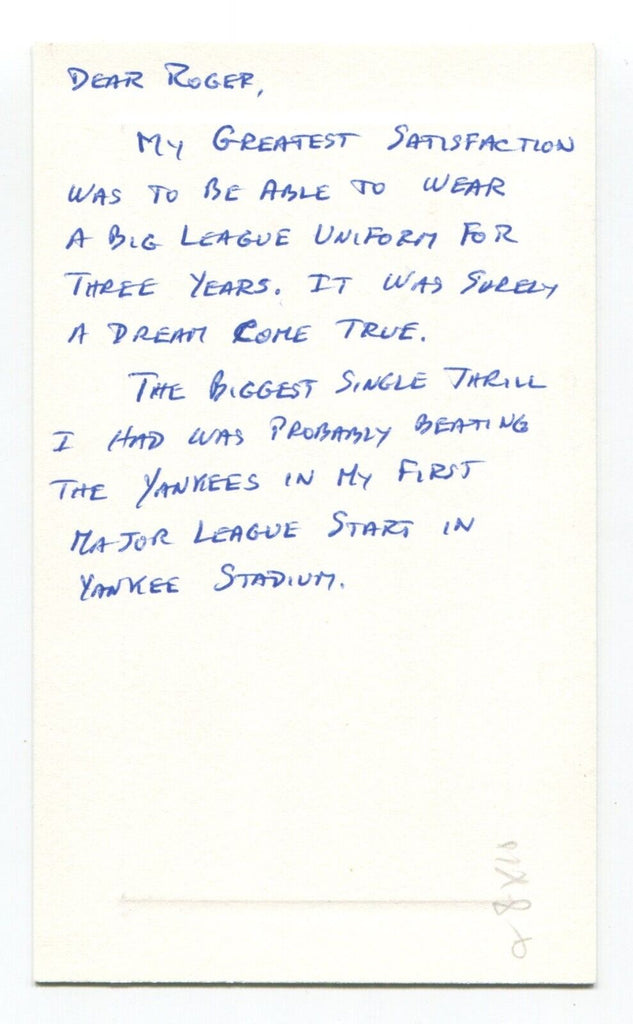 DEAR ROGER,
MY GREATEST SATISFACTION
WAS TO BE ABLE TO WEAR
A BIG LEAGUE UNIFORM FOR
THREE YEARS. IT WAS SURELY
A DREAM COME TRUE.
THE BIGGEST SINGLE THRILL
I HAD WAS PROBABLY BEATING
THE YANKEES IN MY FIRST
MAJOR LEAGUE START IN
YANKEE STADIUM.